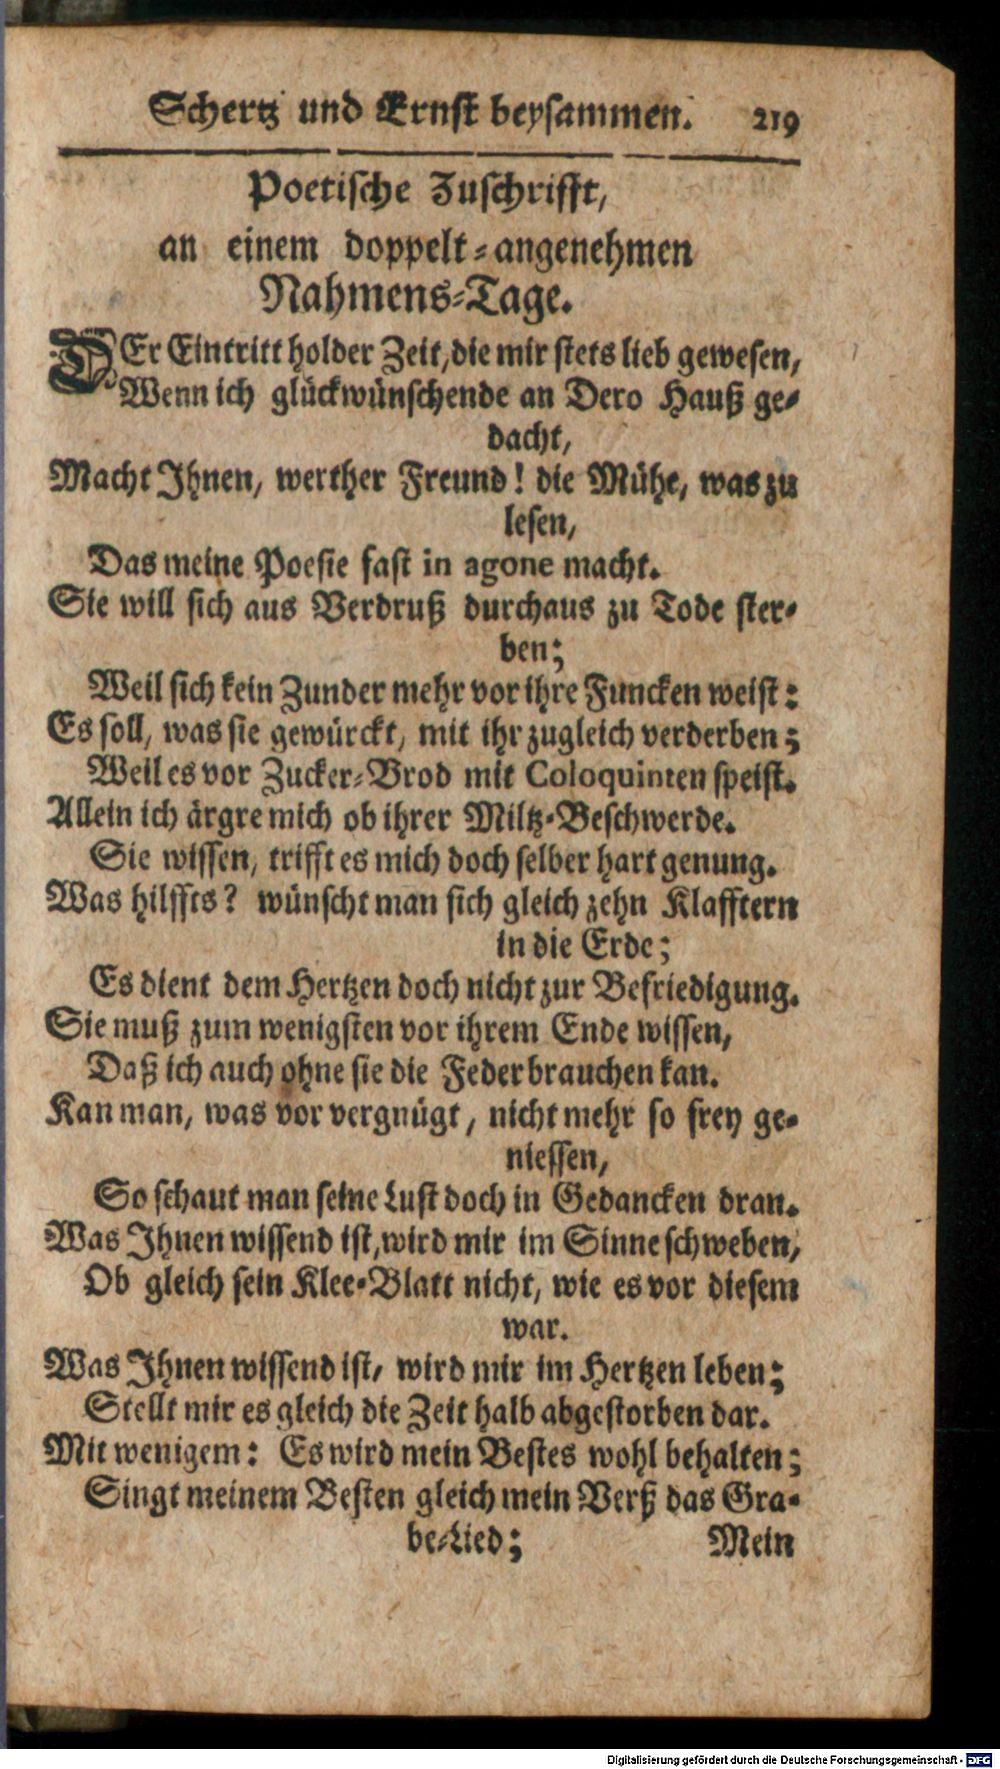 Schertz und Ernst beysammen. 219
Poetische Zuschrifft,
an einem doppelt-angenehmen
Nahmens-Tage.
DEr Eintritt holder Zeit, die mir stets lieb gewesen,
Wenn ich glückwünschende an Dero Hauß ge-
dacht,
Macht Ihnen, werther Freund! die Mühe, was zu
lesen,
Das meine Poesie fast in agone macht.
Sie will sich aus Verdruß durchaus zu Tode ster-
ben;
Weil sich kein Zunder mehr vor ihre Funcken weist:
Es soll, was sie gewürckt, mit ihr zugleich verderben;
Weil es vor Zucker-Brod mit Coloquinten speist.
Allein ich ärgre mich ob ihrer Miltz-Beschwerde.
Sie wissen, trifft es mich doch selber hart genung.
Was hilffts? wünscht man sich gleich zehn Klafftern
in die Erde;
Es dient dem Hertzen doch nicht zur Befriedigung.
Sie muß zum wenigsten vor ihrem Ende wissen,
Daß ich auch ohne sie die Feder brauchen kan.
Kan man, was vor vergnügt, nicht mehr so frey ge-
niessen,
So schaut man seine Lust doch in Gedancken dran.
Was Ihnen wissend ist, wird mir im Sinne schweben,
Ob gleich sein Klee-Blatt nicht, wie es vor diesem
war.
Was Ihnen wissend ist, wird mir im Hertzen leben;
Stellt mir es gleich die Zeit halb abgestorben dar.
Mit wenigem: Es wird mein Bestes wohl behalten;
Singt meinem Besten gleich mein Verß das Gra-
be-Lied; Mein
Digitalisierung gefördert durch die Deutsche Forschungsgemeinschaft - DFG